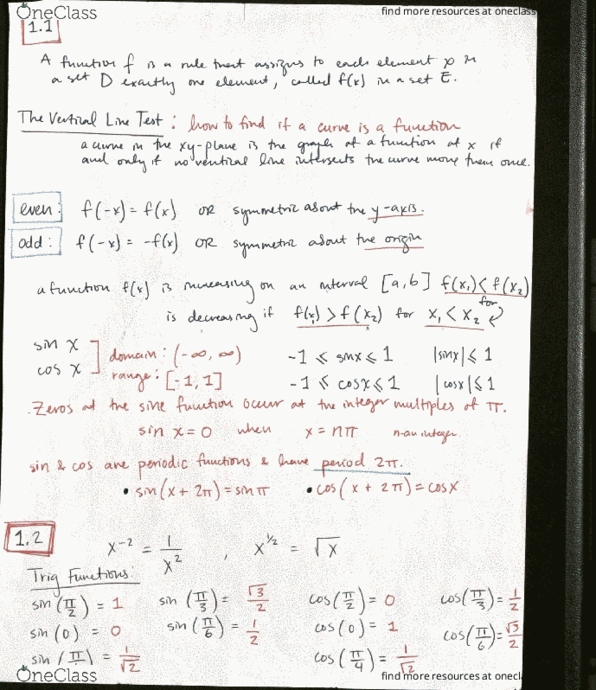 OneClass
find more resources at oneclass
1.1
A function f is a rule that assigns to each element x in
a set D exactly one element, called f(x) in a set E.
The Vertical Line Test: how to find if a curve is a function
a curve in the xy-plane is the graph of a function of x if
and only if no vertical line intersects the curve more than once.
even: f(-x) = f(x) OR symmetric about the y-axis.
odd: f(-x) = -f(x) OR symmetric about the origin
a function f(x) is increasing on an interval [a,b] f(x₁) < f(x₂)
for
is decreasing if f(x₁) > f(x₂) for x₁ < x₂
sin x
cos x
domain: (-∞, ∞)
range: [-1, 1]
-1 ≤ sinx ≤ 1 |sinx| ≤ 1
-1 ≤ cosx ≤ 1 |cosx| ≤ 1
Zeros of the sine function occur at the integer multiples of π.
sin x = 0 when x = nπ n-an integer.
sin & cos are periodic functions & have period 2π.
• sin(x + 2π) = sin π • cos(x + 2π) = cosx
1.2
x⁻² = 1/x² , x^½ = √x
Trig Functions:
sin(π/2) = 1 sin(π/3) = √3/2 cos(π/2) = 0 cos(π/3) = 1/2
sin(0) = 0 sin(π/6) = 1/2 cos(0) = 1 cos(π/6) = √3/2
sin(π = 1/√2 cos(π/4) = 1/√2
OneClass
find more resources at oneclass